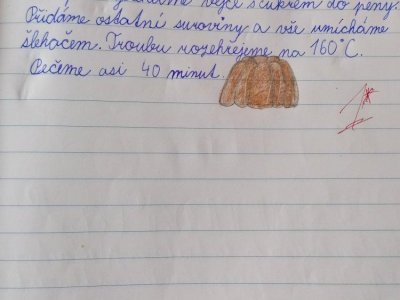 vejce s cukrem do pěny.
Přidáme ostatní suroviny a vše vmícháme
šlehačem. Troubu rozehřejeme na 160°C.
Pečeme asi 40 minut.
1*